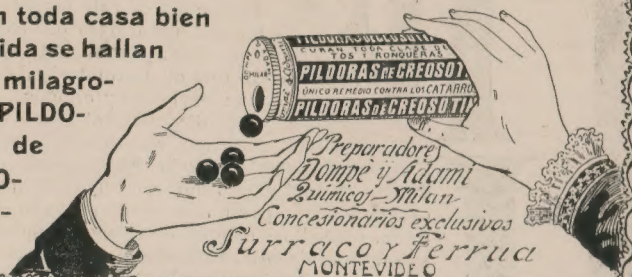 n toda casa bien
ida se hallan
milagro-
PILDO-
de
O-
-
PILDORAS DE CREOSOTI
CURAN TODA CLASE DE
TOS Y RONQUERAS
PILDORAS DE CREOSOTI
ÚNICO REMEDIO CONTRA LOS CATARRO
PILDORAS DE CREOSOTIN
MILAN
Preparadores
Dompé y Adami
Quimicos-Milan
Concesionarios exclusivos
Surraco y Ferrua
MONTEVIDEO